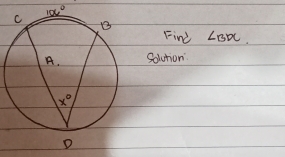 C
100°
B
Find ∠BDC.
Solution:
A.
x°
D